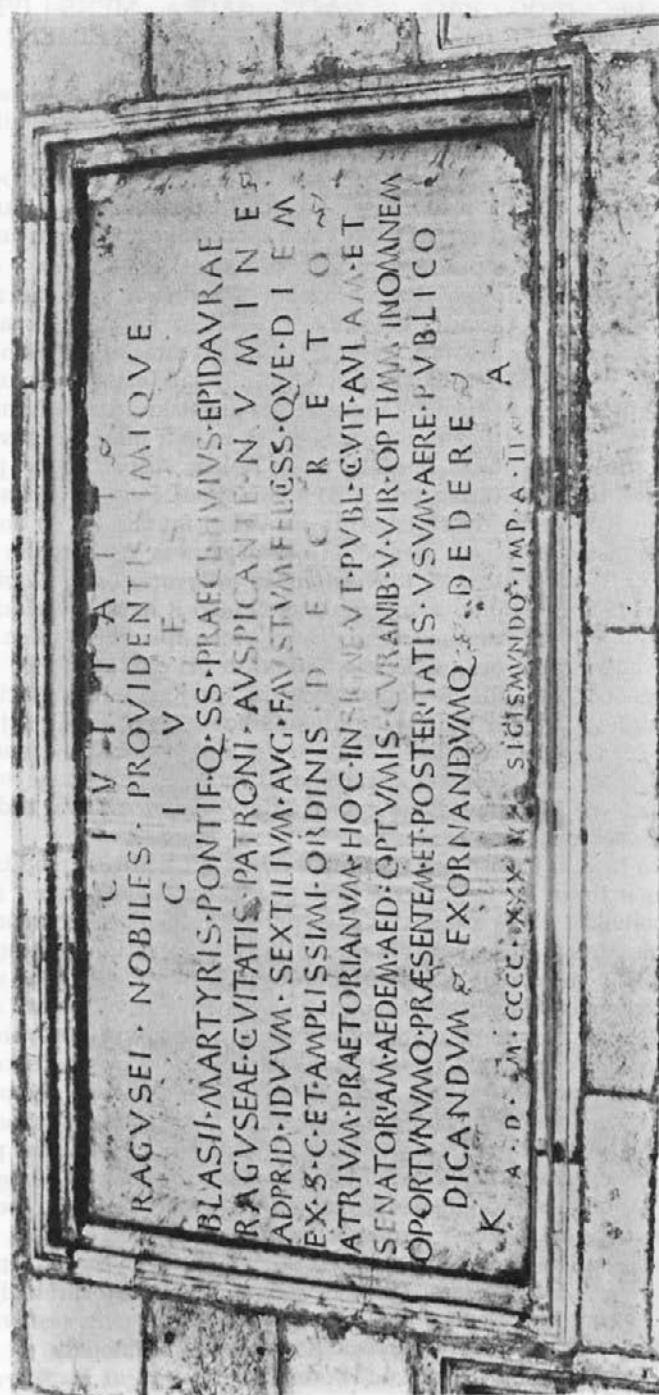 CIVITATI
RAGVSEI · NOBILES · PROVIDENTISSIMIQVE
CIVES
BLASII · MARTYRIS · PONTIF · Q · SS · PRAECL
EPIDAVRAE
RAGVSEAE · CVITATIS · PATRONI · AVSPICANTE · NVMINE
ADPRID · IDVVM · SEXTILIVM · AVG · FAVSTVM · FELCSS · QVE · DIEM
EX · S · C · ET · AMPLISSIMI · ORDINIS · DECRETO
ATRIVM · PRAETORIANVM · HOC · INSIGNE · VT · PVBL · CVIT · AVLAM · ET
SENATORIAM · AEDEM · AED · OPTVMIS · CVRANIB · V · VIR · OPTIMA · INOMNEM
OPORTVNVMQ · PRAESENTEM · ET · POSTERITATIS · VSVM · AERE · PVBLICO
DICANDVM EXORNANDVMQ DEDERE
K A
A · D · M · CCCC · XXX SIGISMVNDO · IMP · A ·